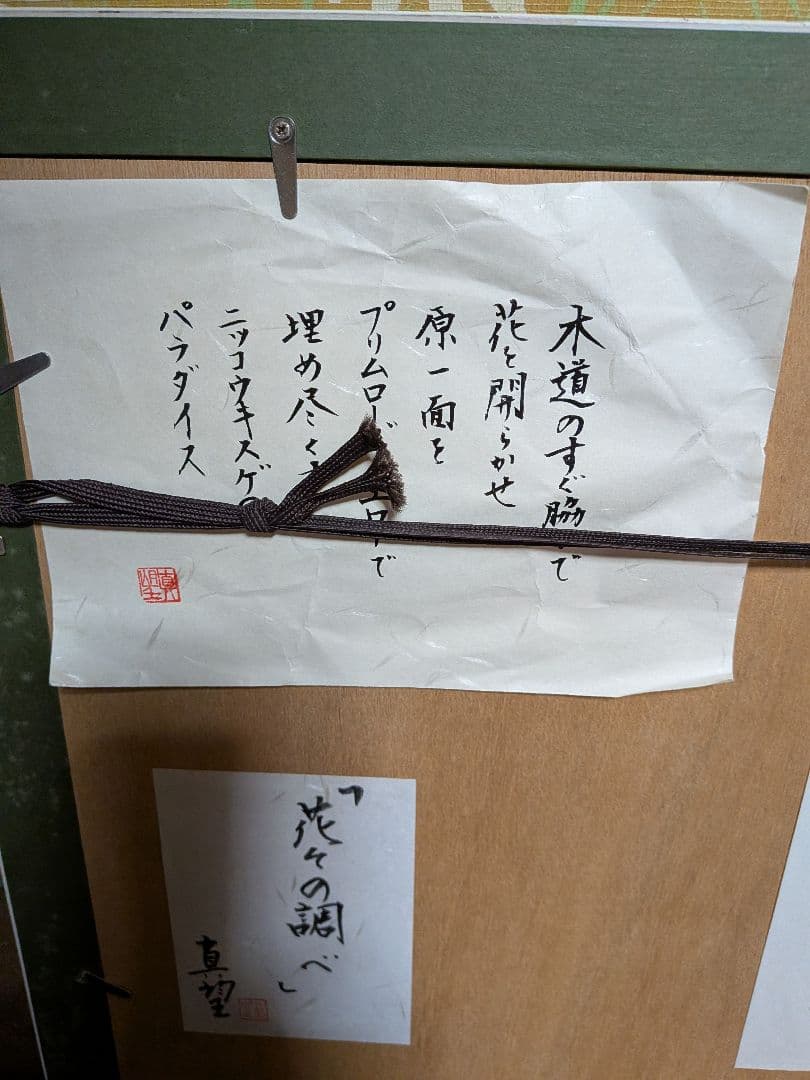 木道のすぐ脇で
花を開らかせ
原一面を
プリムローズイエローで
埋め尽くす
ニッコウキスゲの
パラダイス
「花々の調べ」
真望